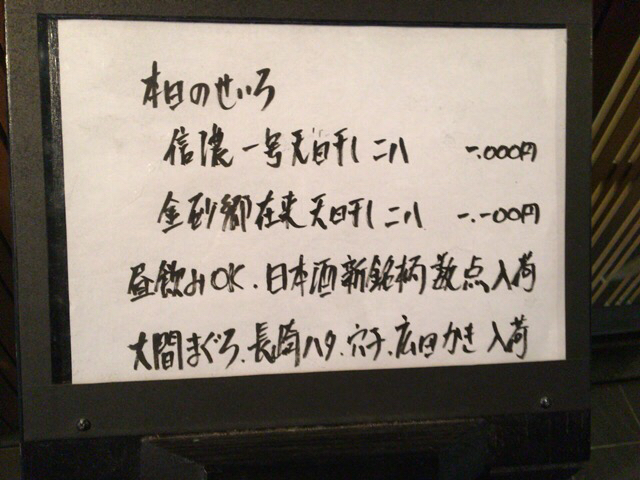 本日のせいろ
信濃一号天日干し二八 一.000円
金砂郷在来天日干し二八 一.一00円
昼飲みOK.日本酒新銘柄数点入荷
大間まぐろ、長崎ハタ、穴子、広田かき入荷